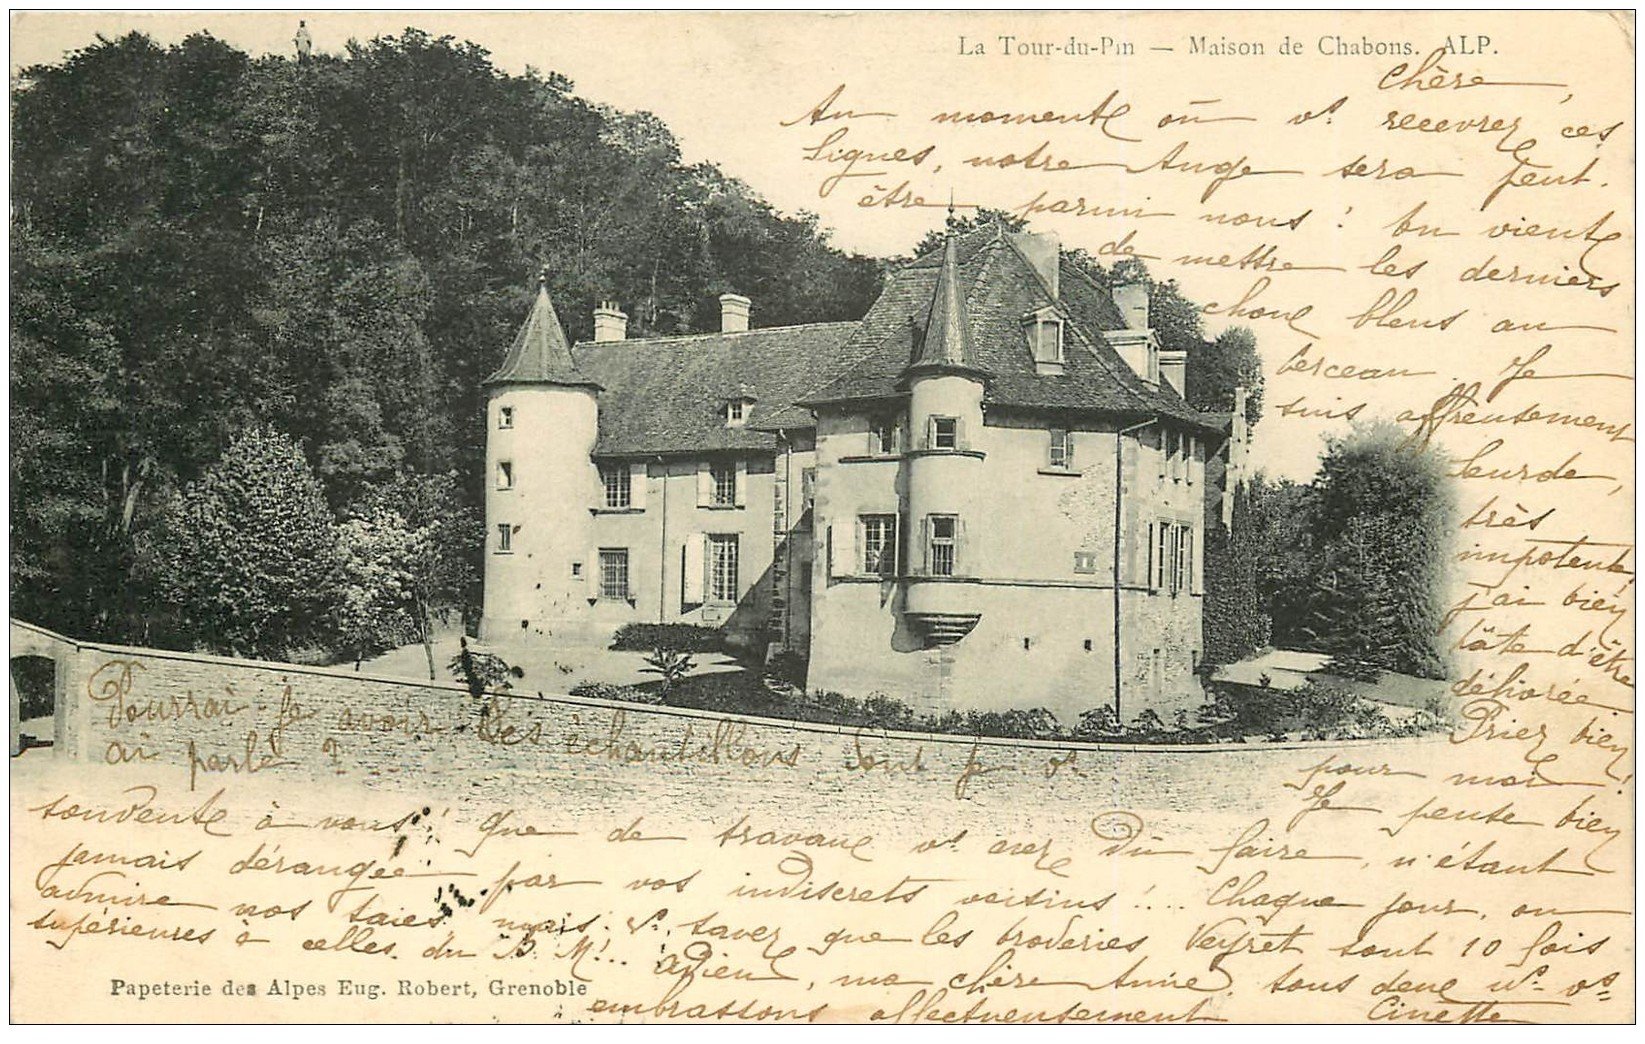 La Tour-du-Pin — Maison de Chabons. ALP.
Chère,
Au moment où vs recevrez ces
lignes, notre Ange sera peut-
être parmi nous ! On vient
de mettre les derniers
choux bleus au
berceau. Je
suis affreusement
lourde,
très
impotente,
j'ai bien
hâte d'être
délivrée.
Priez bien
pour moi !
Je pense bien
souvent à vous ! Que de travaux vs avez dû faire, n'étant
jamais dérangée par vos indiscrets voisins !... Chaque jour, on
admire nos taies, mais vs savez que les broderies Veyret sont 10 fois
supérieures à celles du B. M !.. Adieu, ma chère Annie, tous deux ns vs
embrassons affectueusement Cinette
Pourrai-je avoir les échantillons dont je vs
ai parlé ?
Papeterie des Alpes Eug. Robert, Grenoble